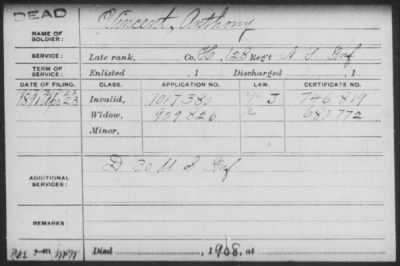 DEAD
Vincent, Anthony
NAME OF SOLDIER:
SERVICE: Late rank, Co. H, 128 Reg't N. Y. Inf
TERM OF SERVICE: Enlisted , 1 Discharged , 1
DATE OF FILING. CLASS. APPLICATION NO. LAW. CERTIFICATE NO.
1891 Invalid, 1017380 J 746819
Widow, 909826 680772
Minor,
ADDITIONAL SERVICES: D 30 U S Inf
REMARKS:
Died , 1908, at